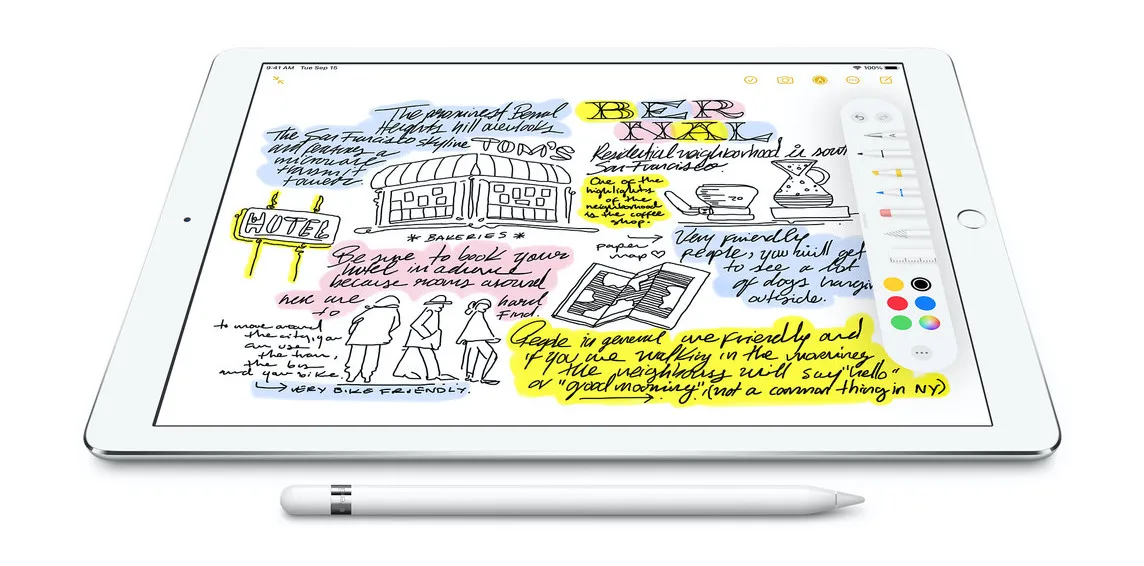 9:41 AM Tue Sep 15
100%
The prominent Bernal
Heights hill overlooks
The San Francisco skyline
and features a
microwave
transmit
tower.
TOM'S
* BAKERIES *
HOTEL
BER
NAL
Residential neighborhood is sou
San Francisco.
One of the
highlights
of the
neighborhood
is the coffee
shop.
20
paper
map
Very friendly
people, you will get
to see a lot
of dogs hangin
outside.
Be sure to book your
hotel in advance
because rooms around
here are hard
to find.
to move around
the city, you
can use
the tram,
the bus
and your bike.
VERY BIKE FRIENDLY.
People in general are friendly and
if you are walking in the morning
the neighbors will say "hello"
or "good morning", (not a common thing in NY)